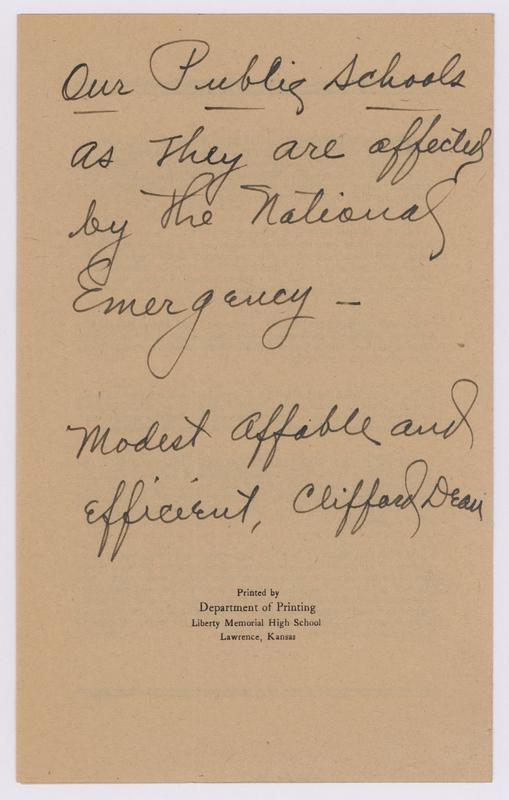 Our Public Schools
as they are affected
by the National
Emergency –
Modest affable and
efficient, Clifford Dean
Printed by
Department of Printing
Liberty Memorial High School
Lawrence, Kansas